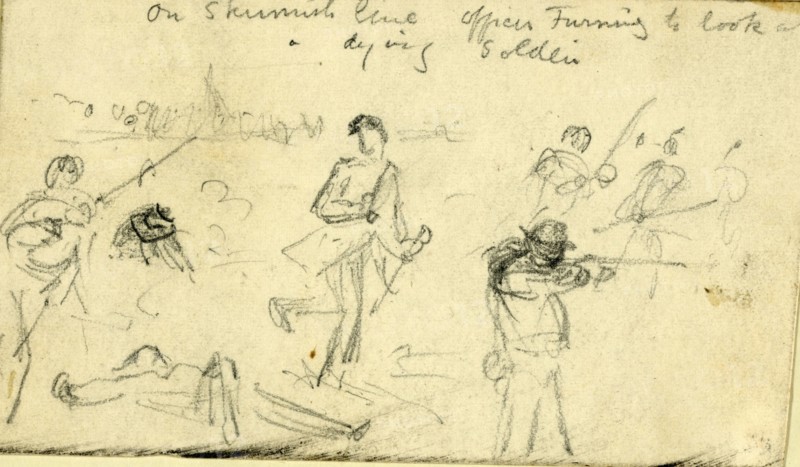 on Skirmish line officer Turning to look a
a dying Soldier